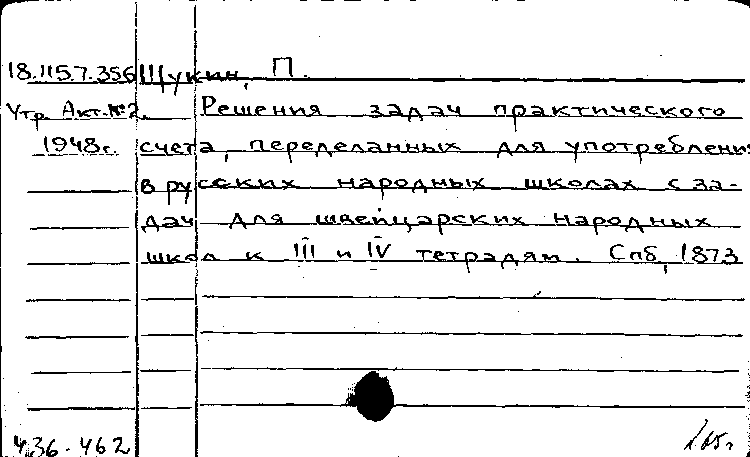 18.115.7.356 Щукин, П.
Утр. Акт. №2. Решения задач практического
1948г. счета, переделанных для употреблени
в русских народных школах с за-
дач для швейцарских народных
школ к III и IV тетрадям. Спб, 1873
436-462